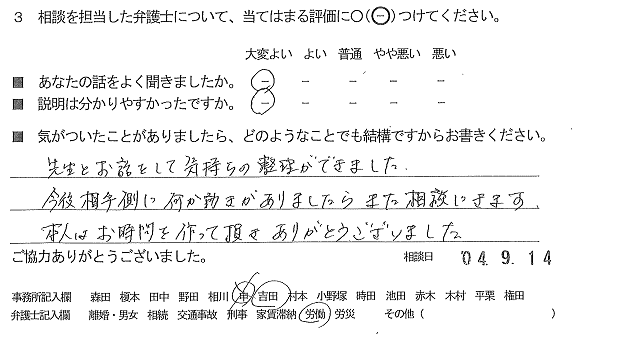 3 相談を担当した弁護士について、当てはまる評価に○(㊀)つけてください。
大変よい よい 普通 やや悪い 悪い
■ あなたの話をよく聞きましたか。 － － － － －
■ 説明は分かりやすかったですか。 － － － － －
■ 気がついたことがありましたら、どのようなことでも結構ですからお書きください。
先生とお話をして気持ちの整理ができました.
今後相手側に何か動きがありましたらまた相談にきます.
本日はお時間を作って頂きありがとうございました
ご協力ありがとうございました。 相談日 '04. 9. 14
事務所記入欄 森田 榎本 田中 野田 相川 申 吉田 村本 小野塚 時田 池田 赤木 木村 平栗 権田
弁護士記入欄 離婚・男女 相続 交通事故 刑事 家賃滞納 労働 労災 その他 ( )